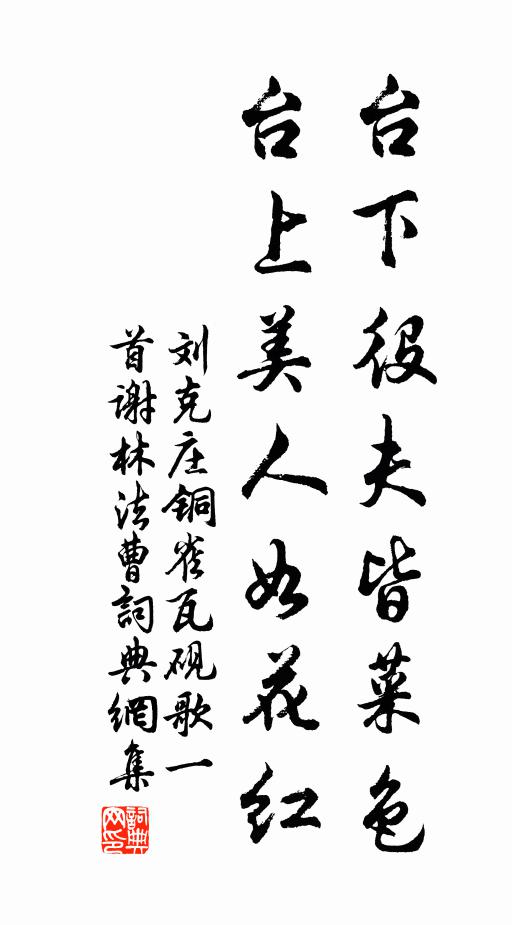 台下役夫皆菜色
台上美人如花红
刘克庄铜雀瓦砚歌一
首谢林法曹詞典網集
詞典
网印